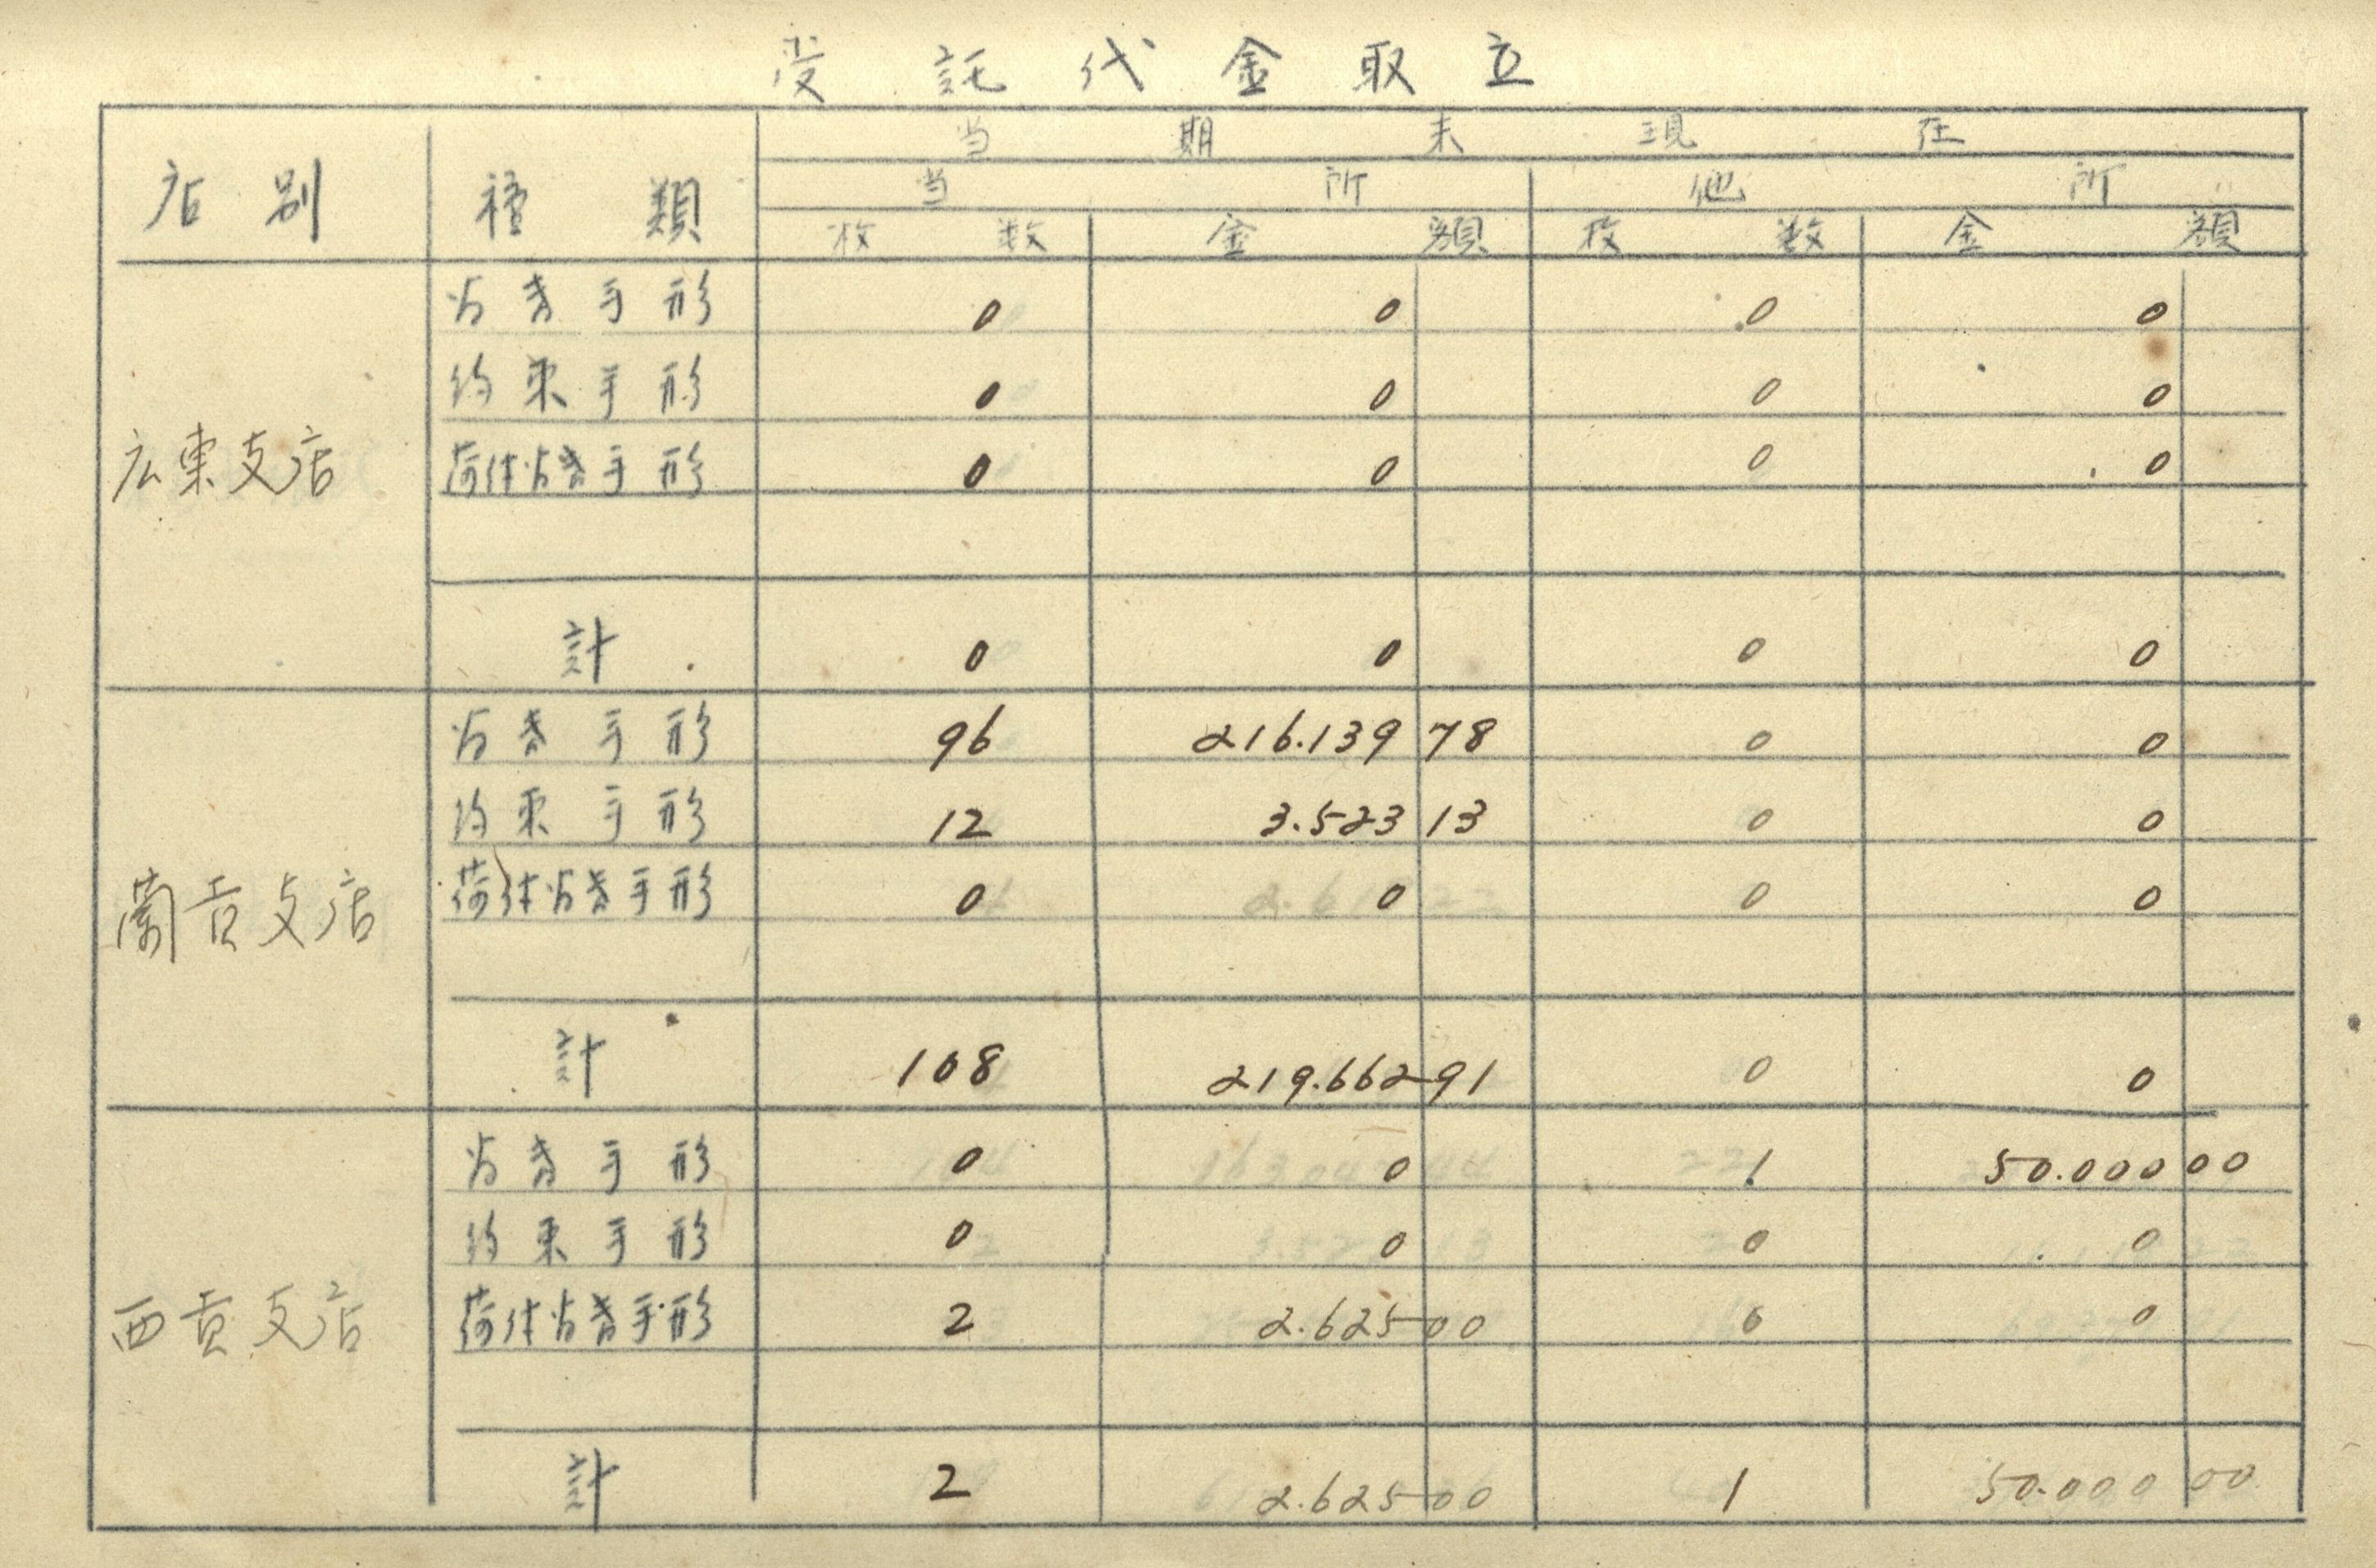 受託代金取立
当期末現在
店別 種類 当所 他所
枚数 金額 枚数 金額
為替手形 0 0 0 0
約束手形 0 0 0 0
広東支店 荷付為替手形 0 0 0 0
計 0 0 0 0
為替手形 96 216.139 78 0 0
約束手形 12 3.523 13 0 0
蘭貢支店 荷付為替手形 0 0 0 0
計 108 219.662 91 0 0
為替手形 0 0 1 50.000 00
約束手形 0 0 0 0
西貢支店 荷付為替手形 2 2.625 00 0 0
計 2 2.625 00 1 50.000 00